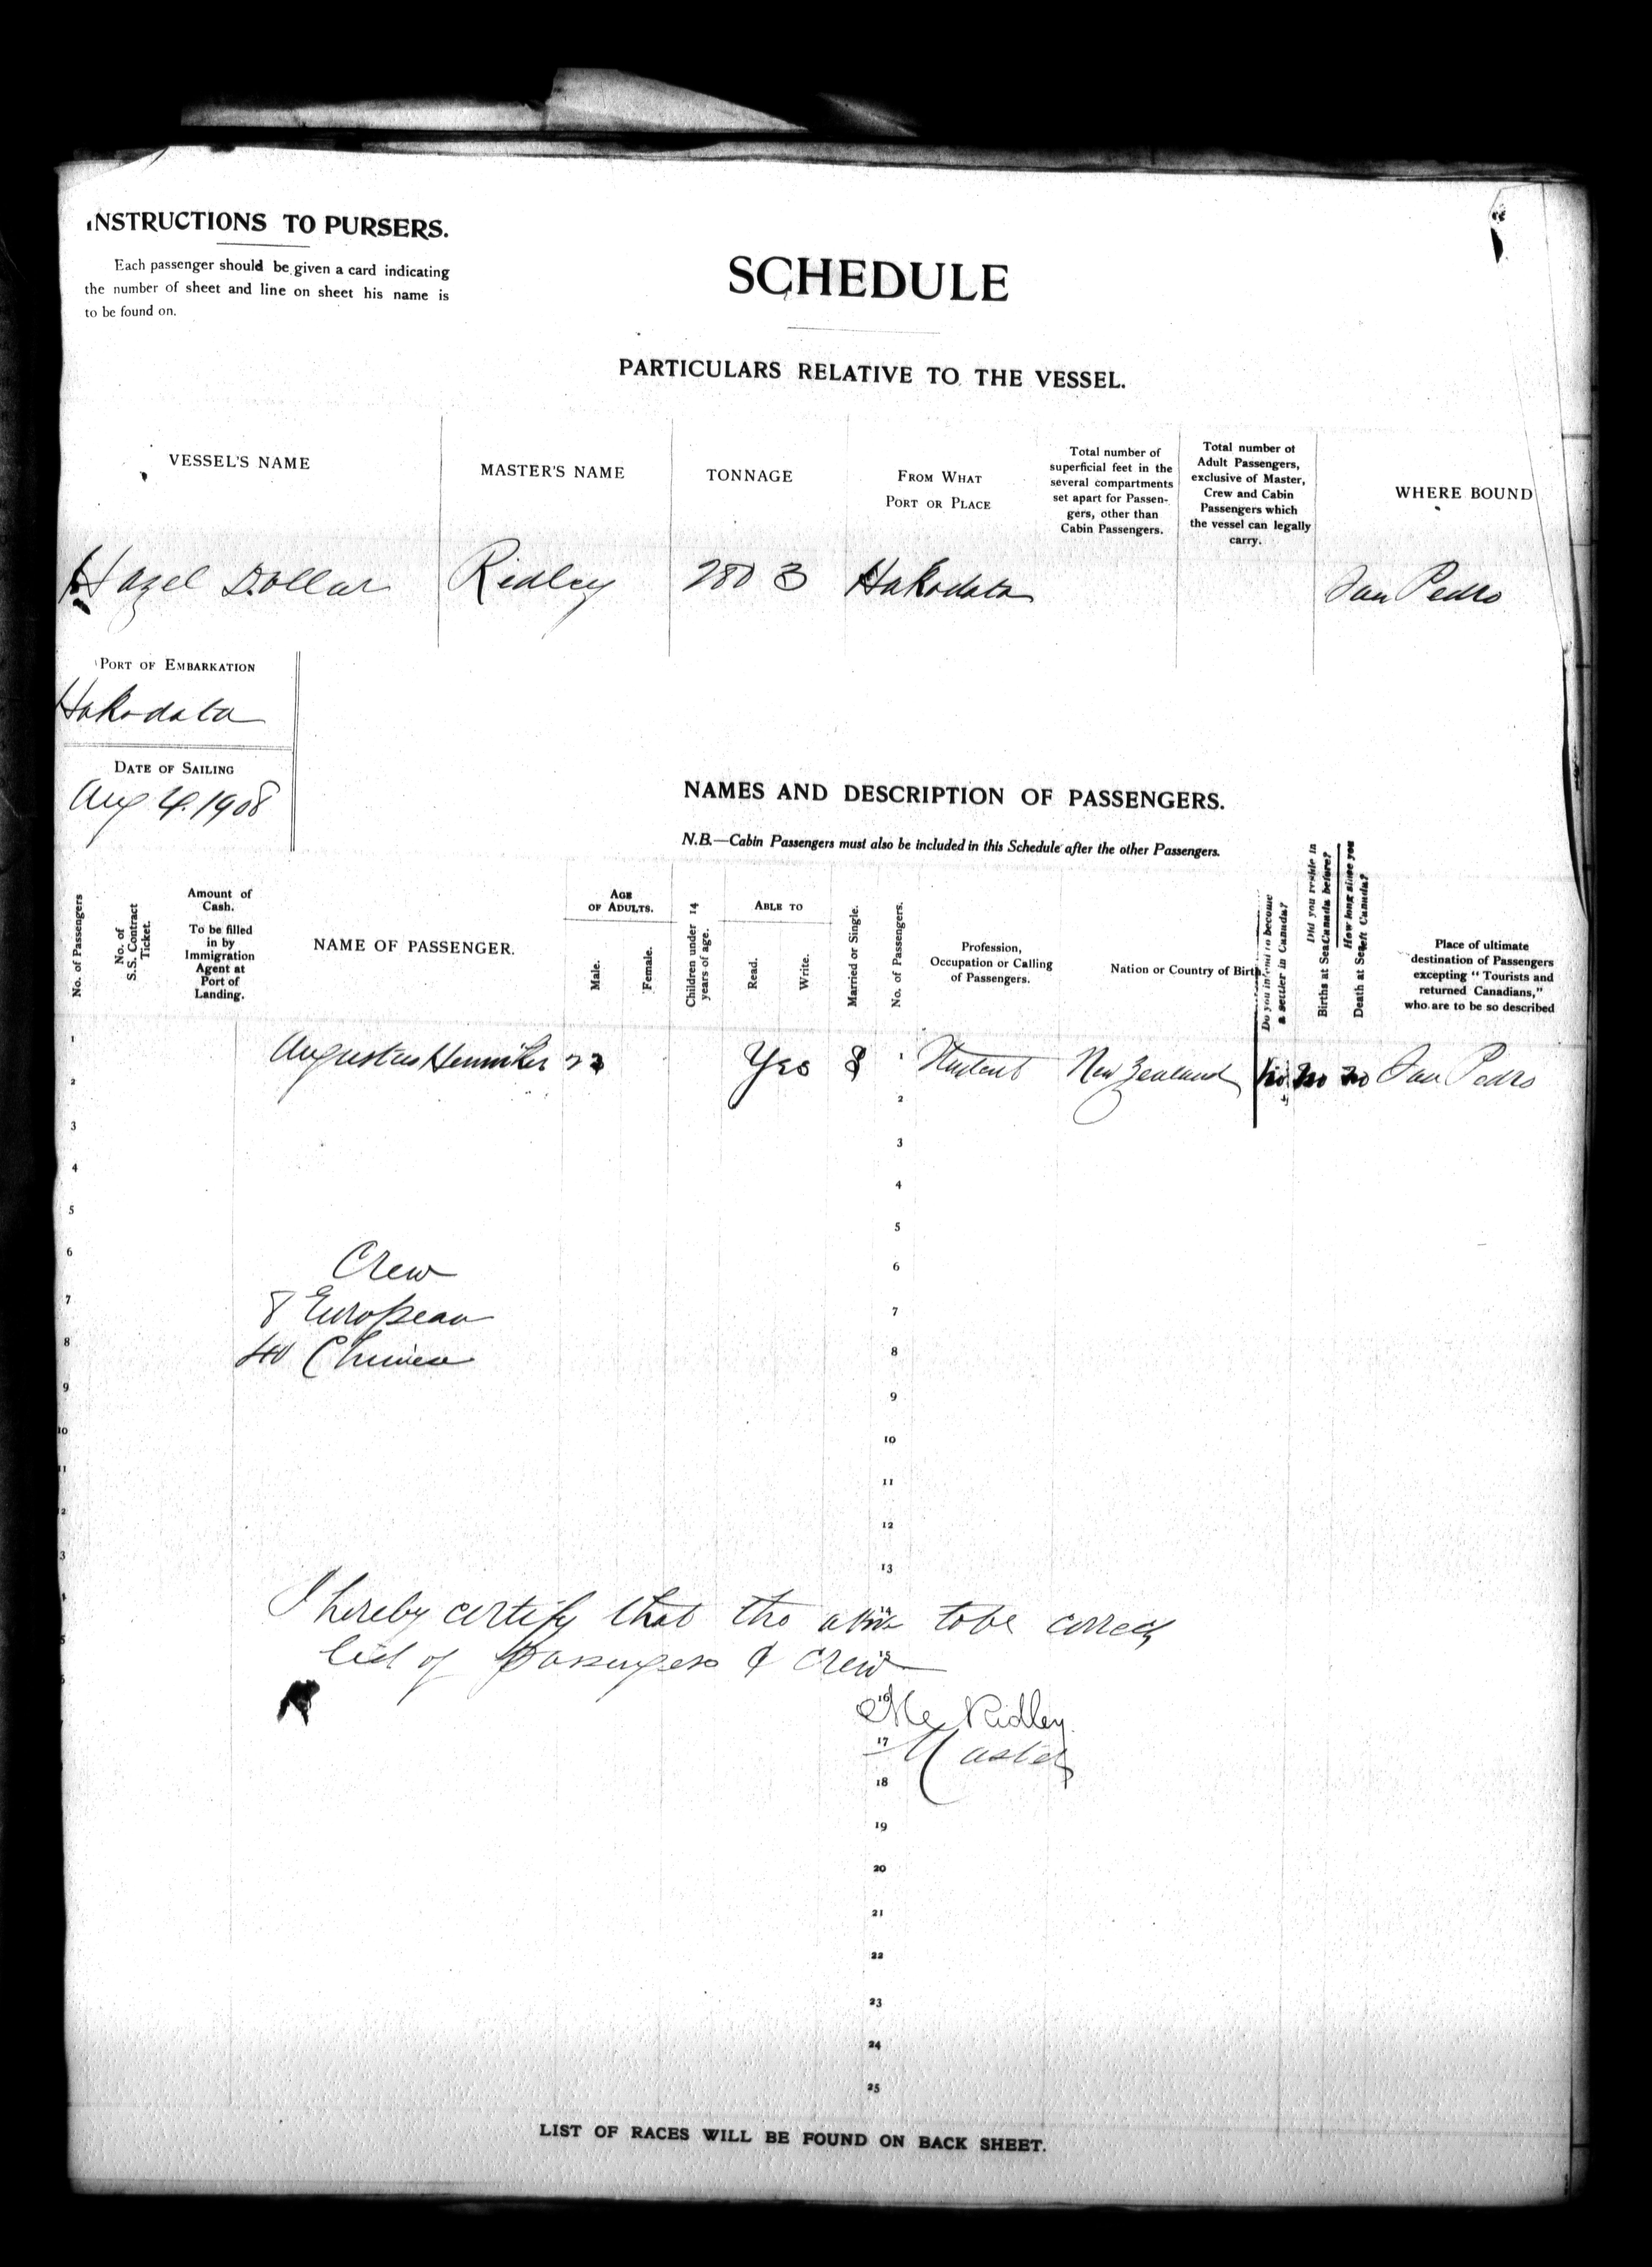 INSTRUCTIONS TO PURSERS.
Each passenger should be given a card indicating
the number of sheet and line on sheet his name is
to be found on.
SCHEDULE
PARTICULARS RELATIVE TO THE VESSEL.
VESSEL'S NAME
MASTER'S NAME
TONNAGE
FROM WHAT
PORT OR PLACE
Total number of
superficial feet in the
several compartments
set apart for Passen-
gers, other than
Cabin Passengers.
Total number of
Adult Passengers,
exclusive of Master,
Crew and Cabin
Passengers which
the vessel can legally
carry.
WHERE BOUND
Hazel Dollar Ridley 2803 Hakodata San Pedro
PORT OF EMBARKATION
Hakodata
DATE OF SAILING
Aug 4. 1908
NAMES AND DESCRIPTION OF PASSENGERS.
N.B.—Cabin Passengers must also be included in this Schedule after the other Passengers.
No. of Passengers
No. of
S.S. Contract
Ticket.
Amount of
Cash.
To be filled
in by
Immigration
Agent at
Port of
Landing.
NAME OF PASSENGER.
AGE
OF ADULTS.
Male.
Female.
Children under 14
years of age.
ABLE TO
Read.
Write.
Married or Single.
No. of Passengers.
Profession,
Occupation or Calling
of Passengers.
Nation or Country of Birth
Do you intend to become
a settler in Canada?
Did you reside in
Canada before?
Births at Sea
How long since you
left Canada?
Death at Sea
Place of ultimate
destination of Passengers
excepting "Tourists and
returned Canadians,"
who are to be so described
1 Augustus Henniker Yes S 1 Student New Zealand no no no San Pedro
2 2
3 3
4 4
5 5
6 Crew 6
7 8 European 7
8 40 Chinese 8
9 9
10 10
11 11
12 12
3 13
I hereby certify that the above to be correct 14
list of passengers & crew 15
16 Ridley
17 Master
18
19
20
21
22
23
24
25
LIST OF RACES WILL BE FOUND ON BACK SHEET.